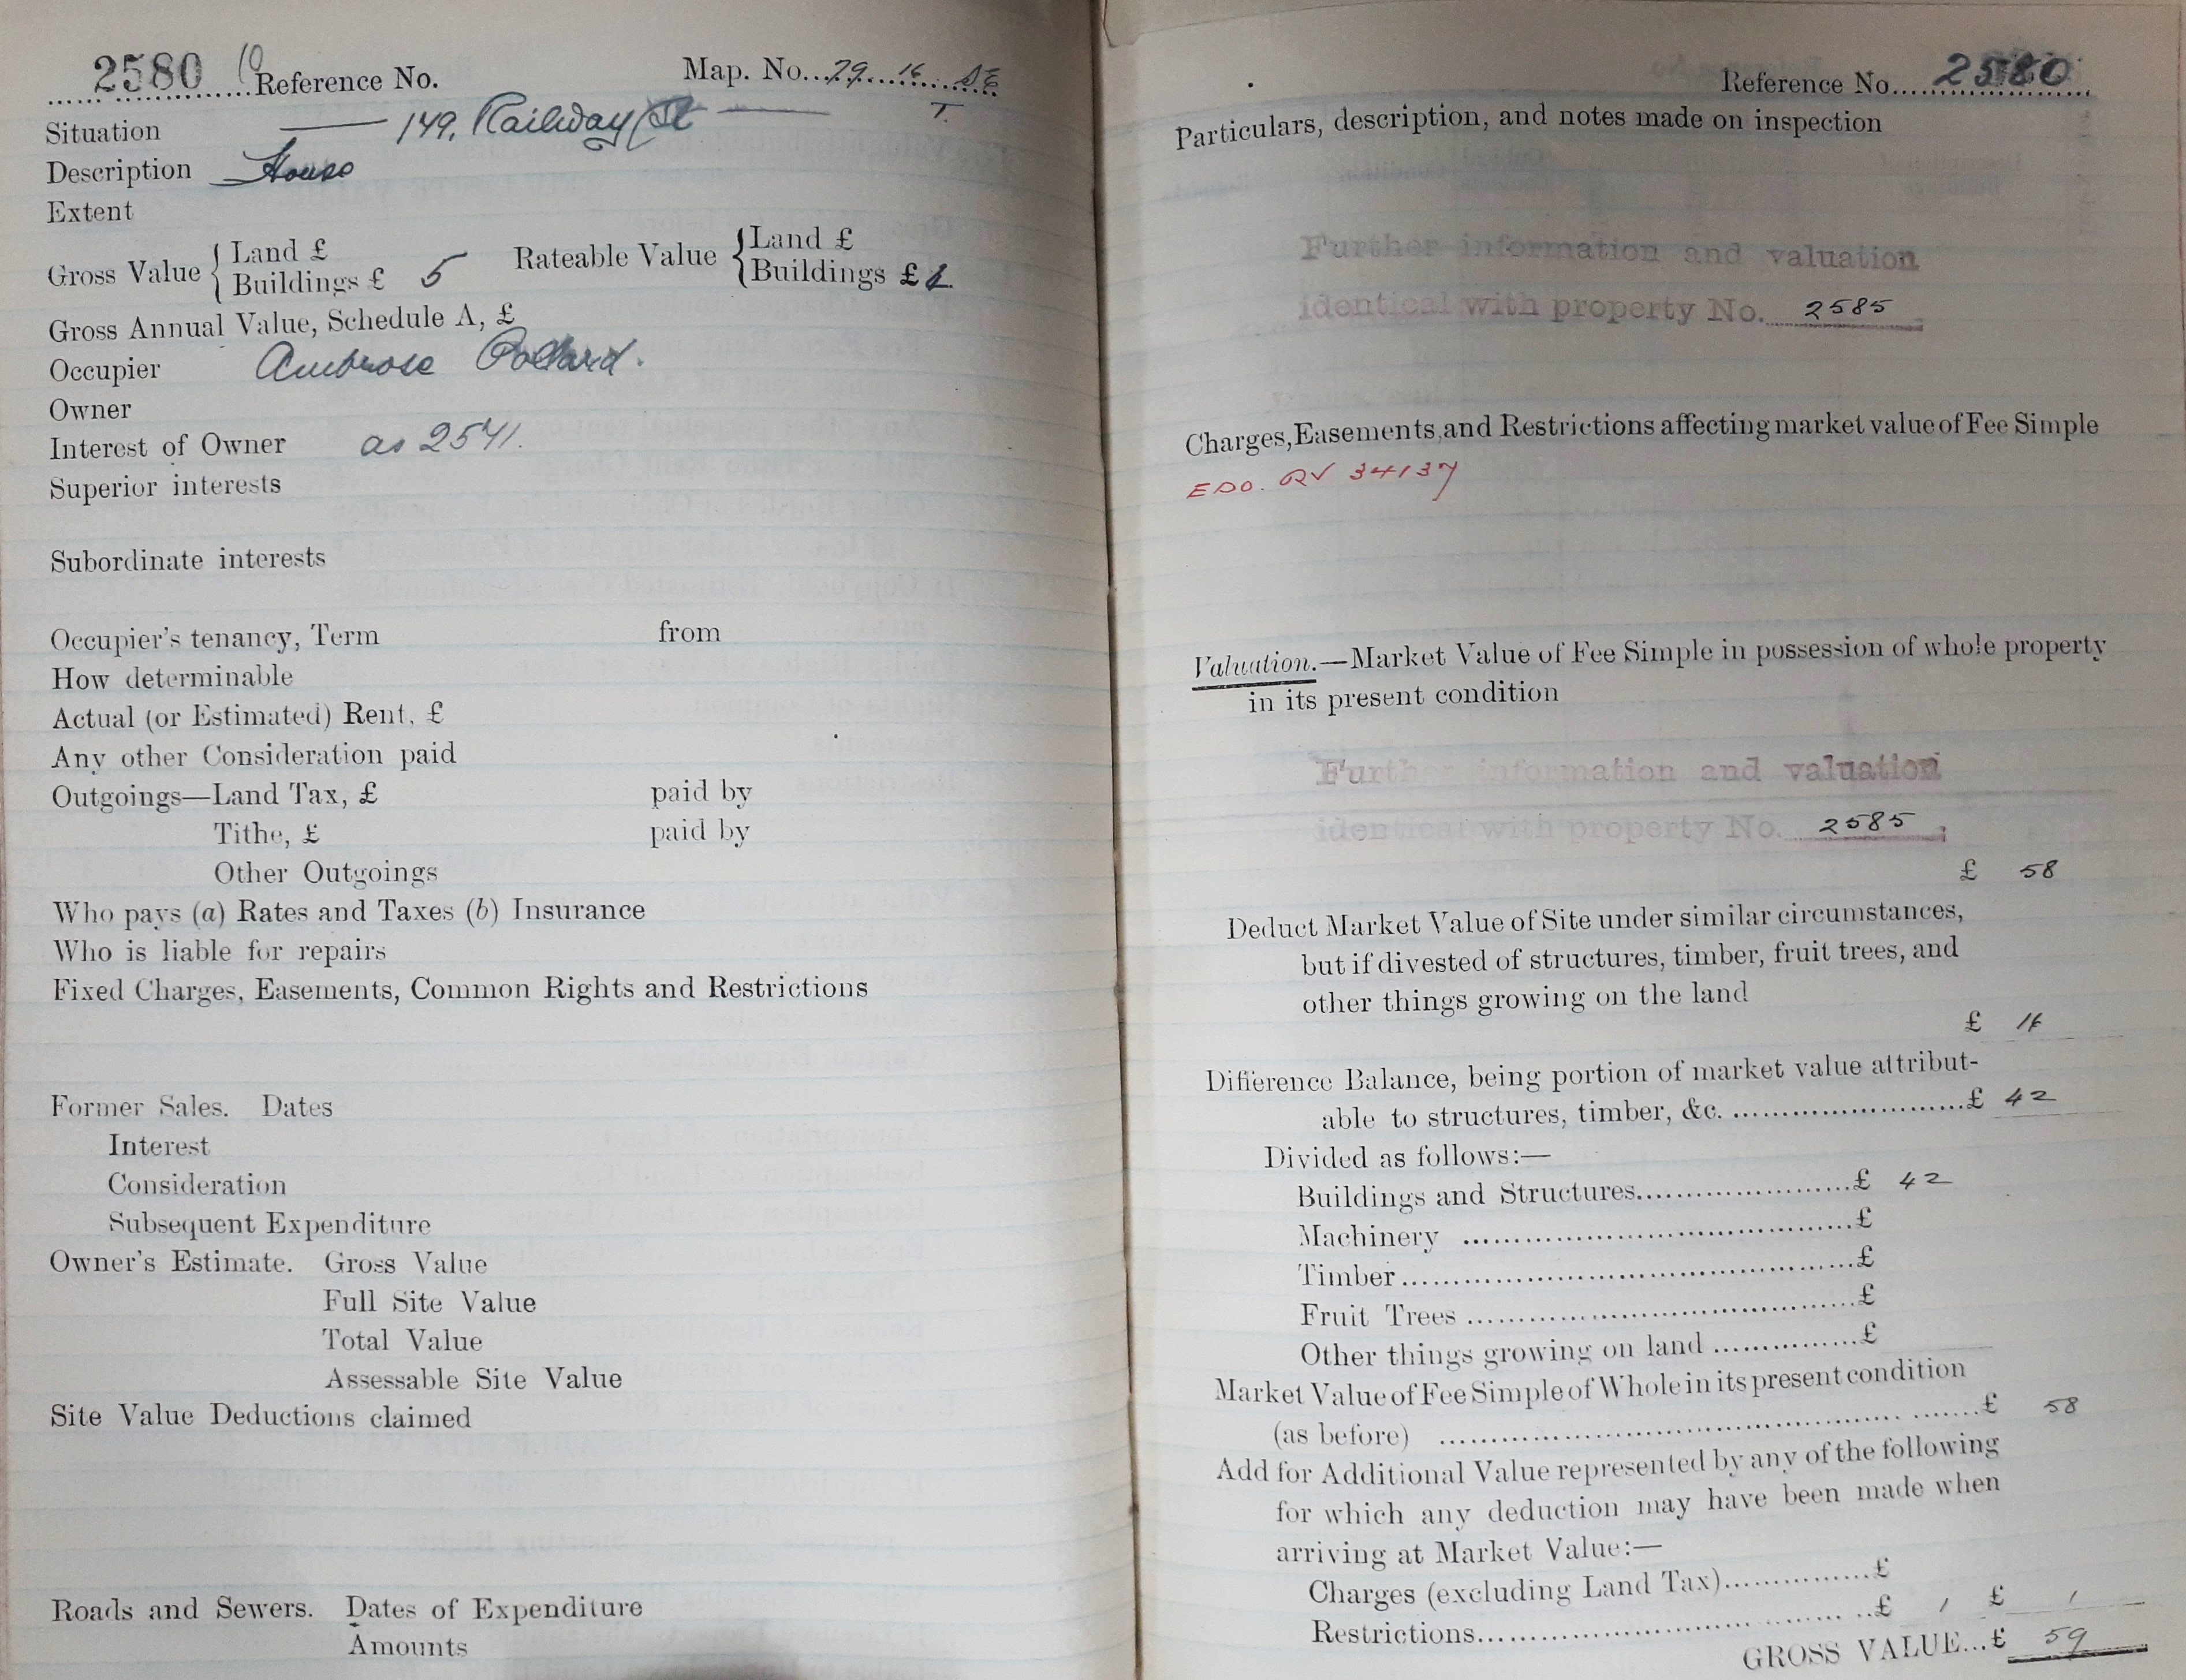 2580 10 Reference No. Map. No. 29 16 SE
T.
Situation 149, Railway St
Description House
Extent
Gross Value { Land £
Buildings £ 5
Rateable Value { Land £
Buildings £
Gross Annual Value, Schedule A, £
Occupier Ambrose Pollard.
Owner
Interest of Owner as 2541.
Superior interests
Subordinate interests
Occupier's tenancy, Term from
How determinable
Actual (or Estimated) Rent, £
Any other Consideration paid
Outgoings—Land Tax, £ paid by
Tithe, £ paid by
Other Outgoings
Who pays (a) Rates and Taxes (b) Insurance
Who is liable for repairs
Fixed Charges, Easements, Common Rights and Restrictions
Former Sales. Dates
Interest
Consideration
Subsequent Expenditure
Owner's Estimate. Gross Value
Full Site Value
Total Value
Assessable Site Value
Site Value Deductions claimed
Roads and Sewers. Dates of Expenditure
Amounts
Reference No. 2580
Particulars, description, and notes made on inspection
Further information and valuation
identical with property No. 2585
Charges, Easements, and Restrictions affecting market value of Fee Simple
EDO. RV 34137
Valuation.—Market Value of Fee Simple in possession of whole property
in its present condition
Further information and valuation
identical with property No. 2585
£ 58
Deduct Market Value of Site under similar circumstances,
but if divested of structures, timber, fruit trees, and
other things growing on the land
£ 16
Difference Balance, being portion of market value attribut-
able to structures, timber, &c. £ 42
Divided as follows:—
Buildings and Structures £ 42
Machinery £
Timber £
Fruit Trees £
Other things growing on land £
Market Value of Fee Simple of Whole in its present condition
(as before) £ 58
Add for Additional Value represented by any of the following
for which any deduction may have been made when
arriving at Market Value:—
Charges (excluding Land Tax) £
Restrictions £ 1 £ 1
GROSS VALUE... £ 59